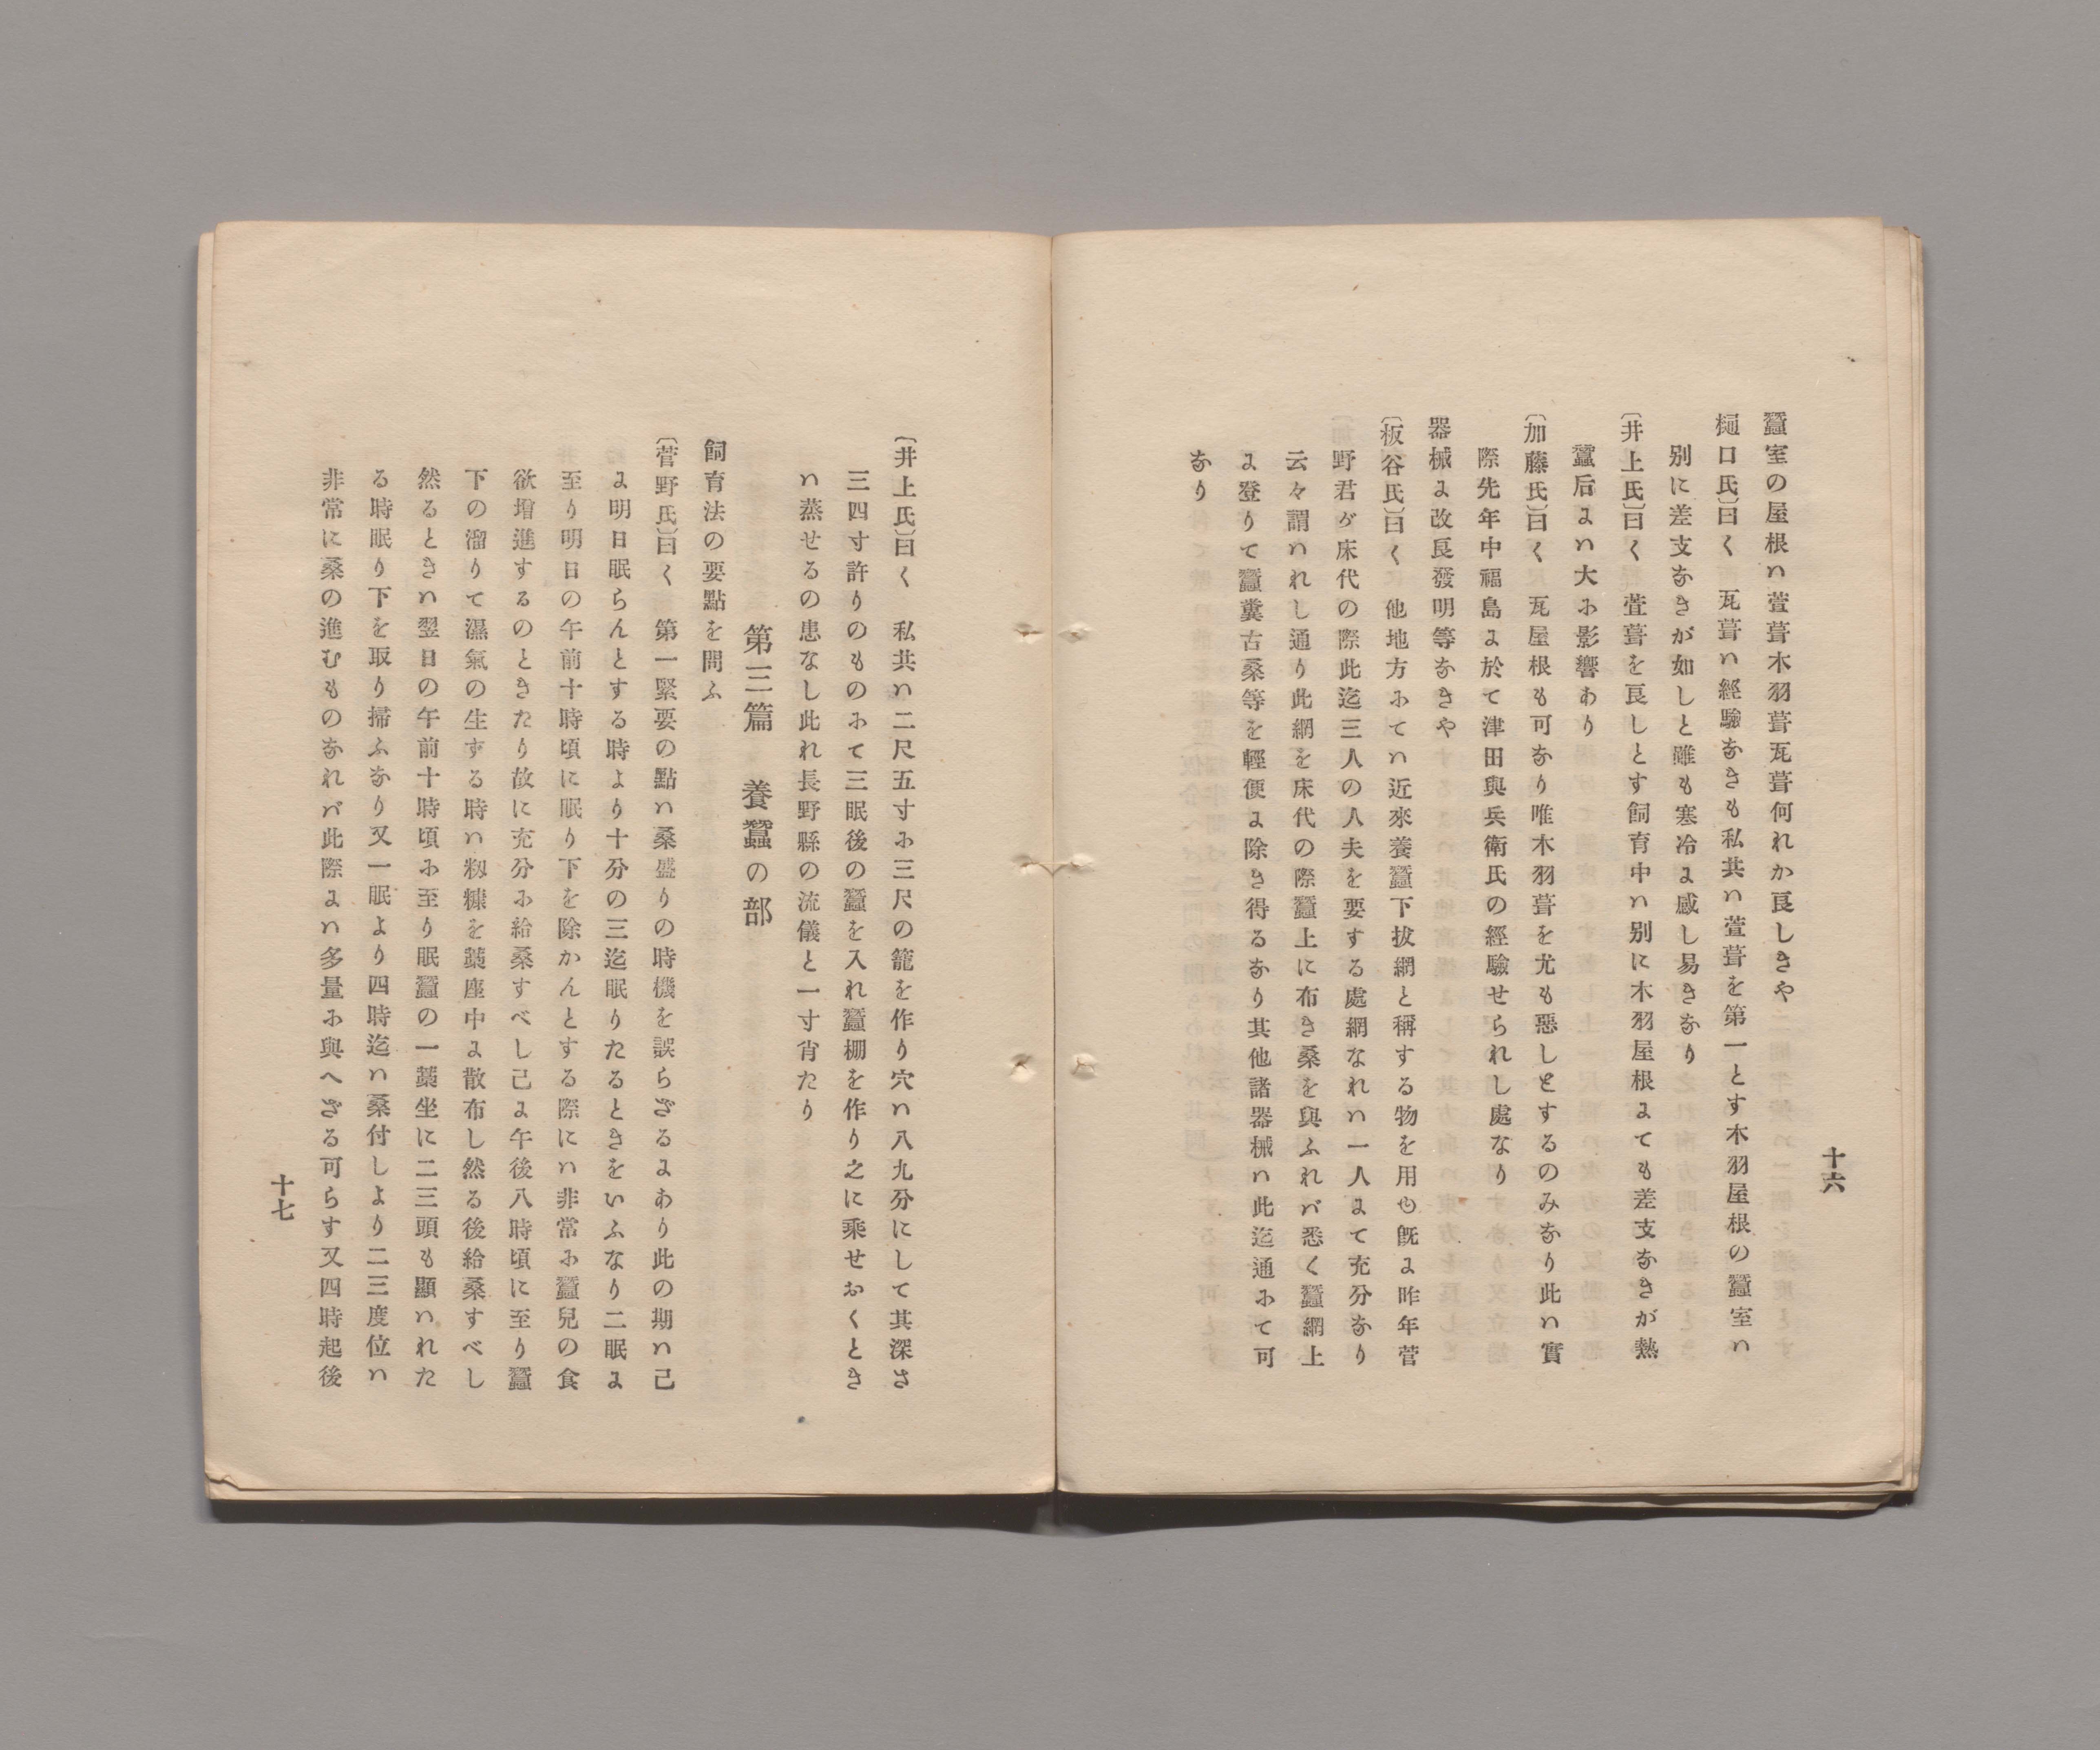 蠶室の屋根ハ萱葺木羽葺瓦葺何れか良しきや
樋口氏〕曰く　瓦葺ハ經驗なきも私共ハ萱葺を第一とす木羽屋根の蠶室ハ
別に差支なきが如しと雖も寒冷に感し易きなり
〔井上氏〕曰く　萱葺を良しとす飼育中ハ別に木羽屋根にても差支なきが熱
蠶后にハ大に影響あり
〔加藤氏〕曰く　瓦屋根も可なり唯木羽葺を尤も惡しとするのみなり此ハ實
際先年中福島に於て津田與兵衛氏の經驗せられし處なり
器械に改良發明等なきや
〔板谷氏〕曰く　他地方にてハ近來養蠶下拔網と稱する物を用ゆ既に昨年菅
野君が床代の際此迄三人の人夫を要する處網なれハ一人にて充分なり
云々謂ハれし通り此網を床代の際蠶上に布き桑を與ふれバ悉く蠶網上
に登りて蠶糞古桑等を輕便に除き得るなり其他諸器械ハ此迄通にて可
なり
十六
〔井上氏〕曰く　私共ハ二尺五寸に三尺の籠を作り穴ハ八九分にして其深さ
三四寸許りのものにて三眠後の蠶を入れ蠶棚を作り之に乘せおくとき
ハ蒸せるの患なし此れ長野縣の流儀と一寸肖たり
第三篇　養蠶の部
飼育法の要點を問ふ
〔菅野氏〕曰く　第一緊要の點ハ桑盛りの時機を誤らざるにあり此の期ハ己
に明日眠らんとする時より十分の三迄眠りたるときをいふなり二眠に
至り明日の午前十時頃に眠り下を除かんとする際にハ非常に蠶兒の食
欲增進するのときたり故に充分に給桑すべし己に午後八時頃に至り蠶
下の溜りて濕氣の生ずる時ハ籾糠を藁座中に散布し然る後給桑すべし
然るときハ翌日の午前十時頃に至り眠蠶の一藁坐に二三頭も顯ハれた
る時眠り下を取り掃ふなり又一眠より四時迄ハ桑付しより二三度位ハ
非常に桑の進むものなれバ此際にハ多量に與へざる可らす又四時起後
十七